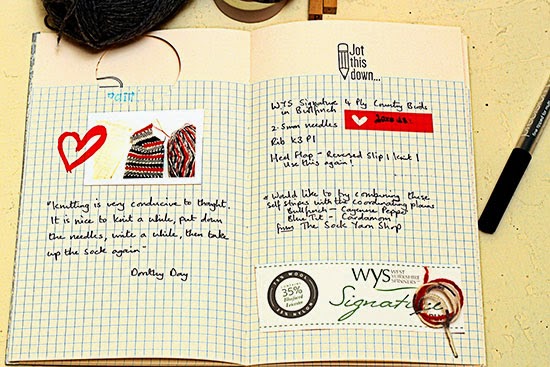 "Knitting is very conducive to thought.
It is nice to knit a while, put down
the needles, write a while, then take
up the sock again"
Dorothy Day
Jot
this
down...
WYS Signature 4 Ply Country Birds
in Bullfinch
2.5mm needles
Rib K3 P1
Heel Flap - Reversed Slip 1 knit 1
Use this again!
* Would like to try combining these
self stripes with the coordinating plains
Bullfinch - Cayenne Pepper
Blue Tit - Cardamom
from The Sock Yarn Shop
75% WOOL
35%
Bluefaced
Leicester
25% NYLON
WYS WEST
YORKSHIRE
SPINNERS
Signature